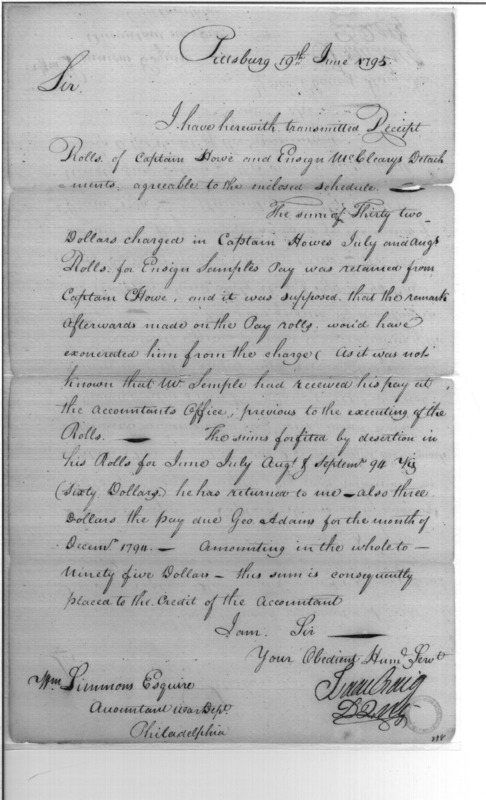 Pittsburg 19th June 1795.
Sir
I have herewith transmitted Receipt
Rolls of Captain Howe and Ensign McClearys Detach
-ments, agreable to the enclosed schedule. —
The sum of Thirty two
Dollars charged in Captain Howes July and Augt
Rolls for Ensign Samples Pay was returned from
Captain Howe, and it was supposed that the remark
afterwards made on the Pay rolls would have
exonerated him from the charge (As it was not
known that Mr Semple had received his pay at
the Accountants Office, previous to the executing of the
Rolls. — The sums forfited by desertion in
his Rolls for June July Augt & Septemr 94 Viz
(Sixty Dollars) he has returned to me — also three
Dollars the pay due Geo. Adams for the month of
Decemr 1794. — Amounting in the whole to —
Ninety five Dollars — this sum is consequently
placed to the Credit of the Accountant
I am Sir —
Your Obedient Humd Servt
Isaac Craig
D Q M G
Wm Simmons Esquire
Accountant War Dept.
Philadelphia